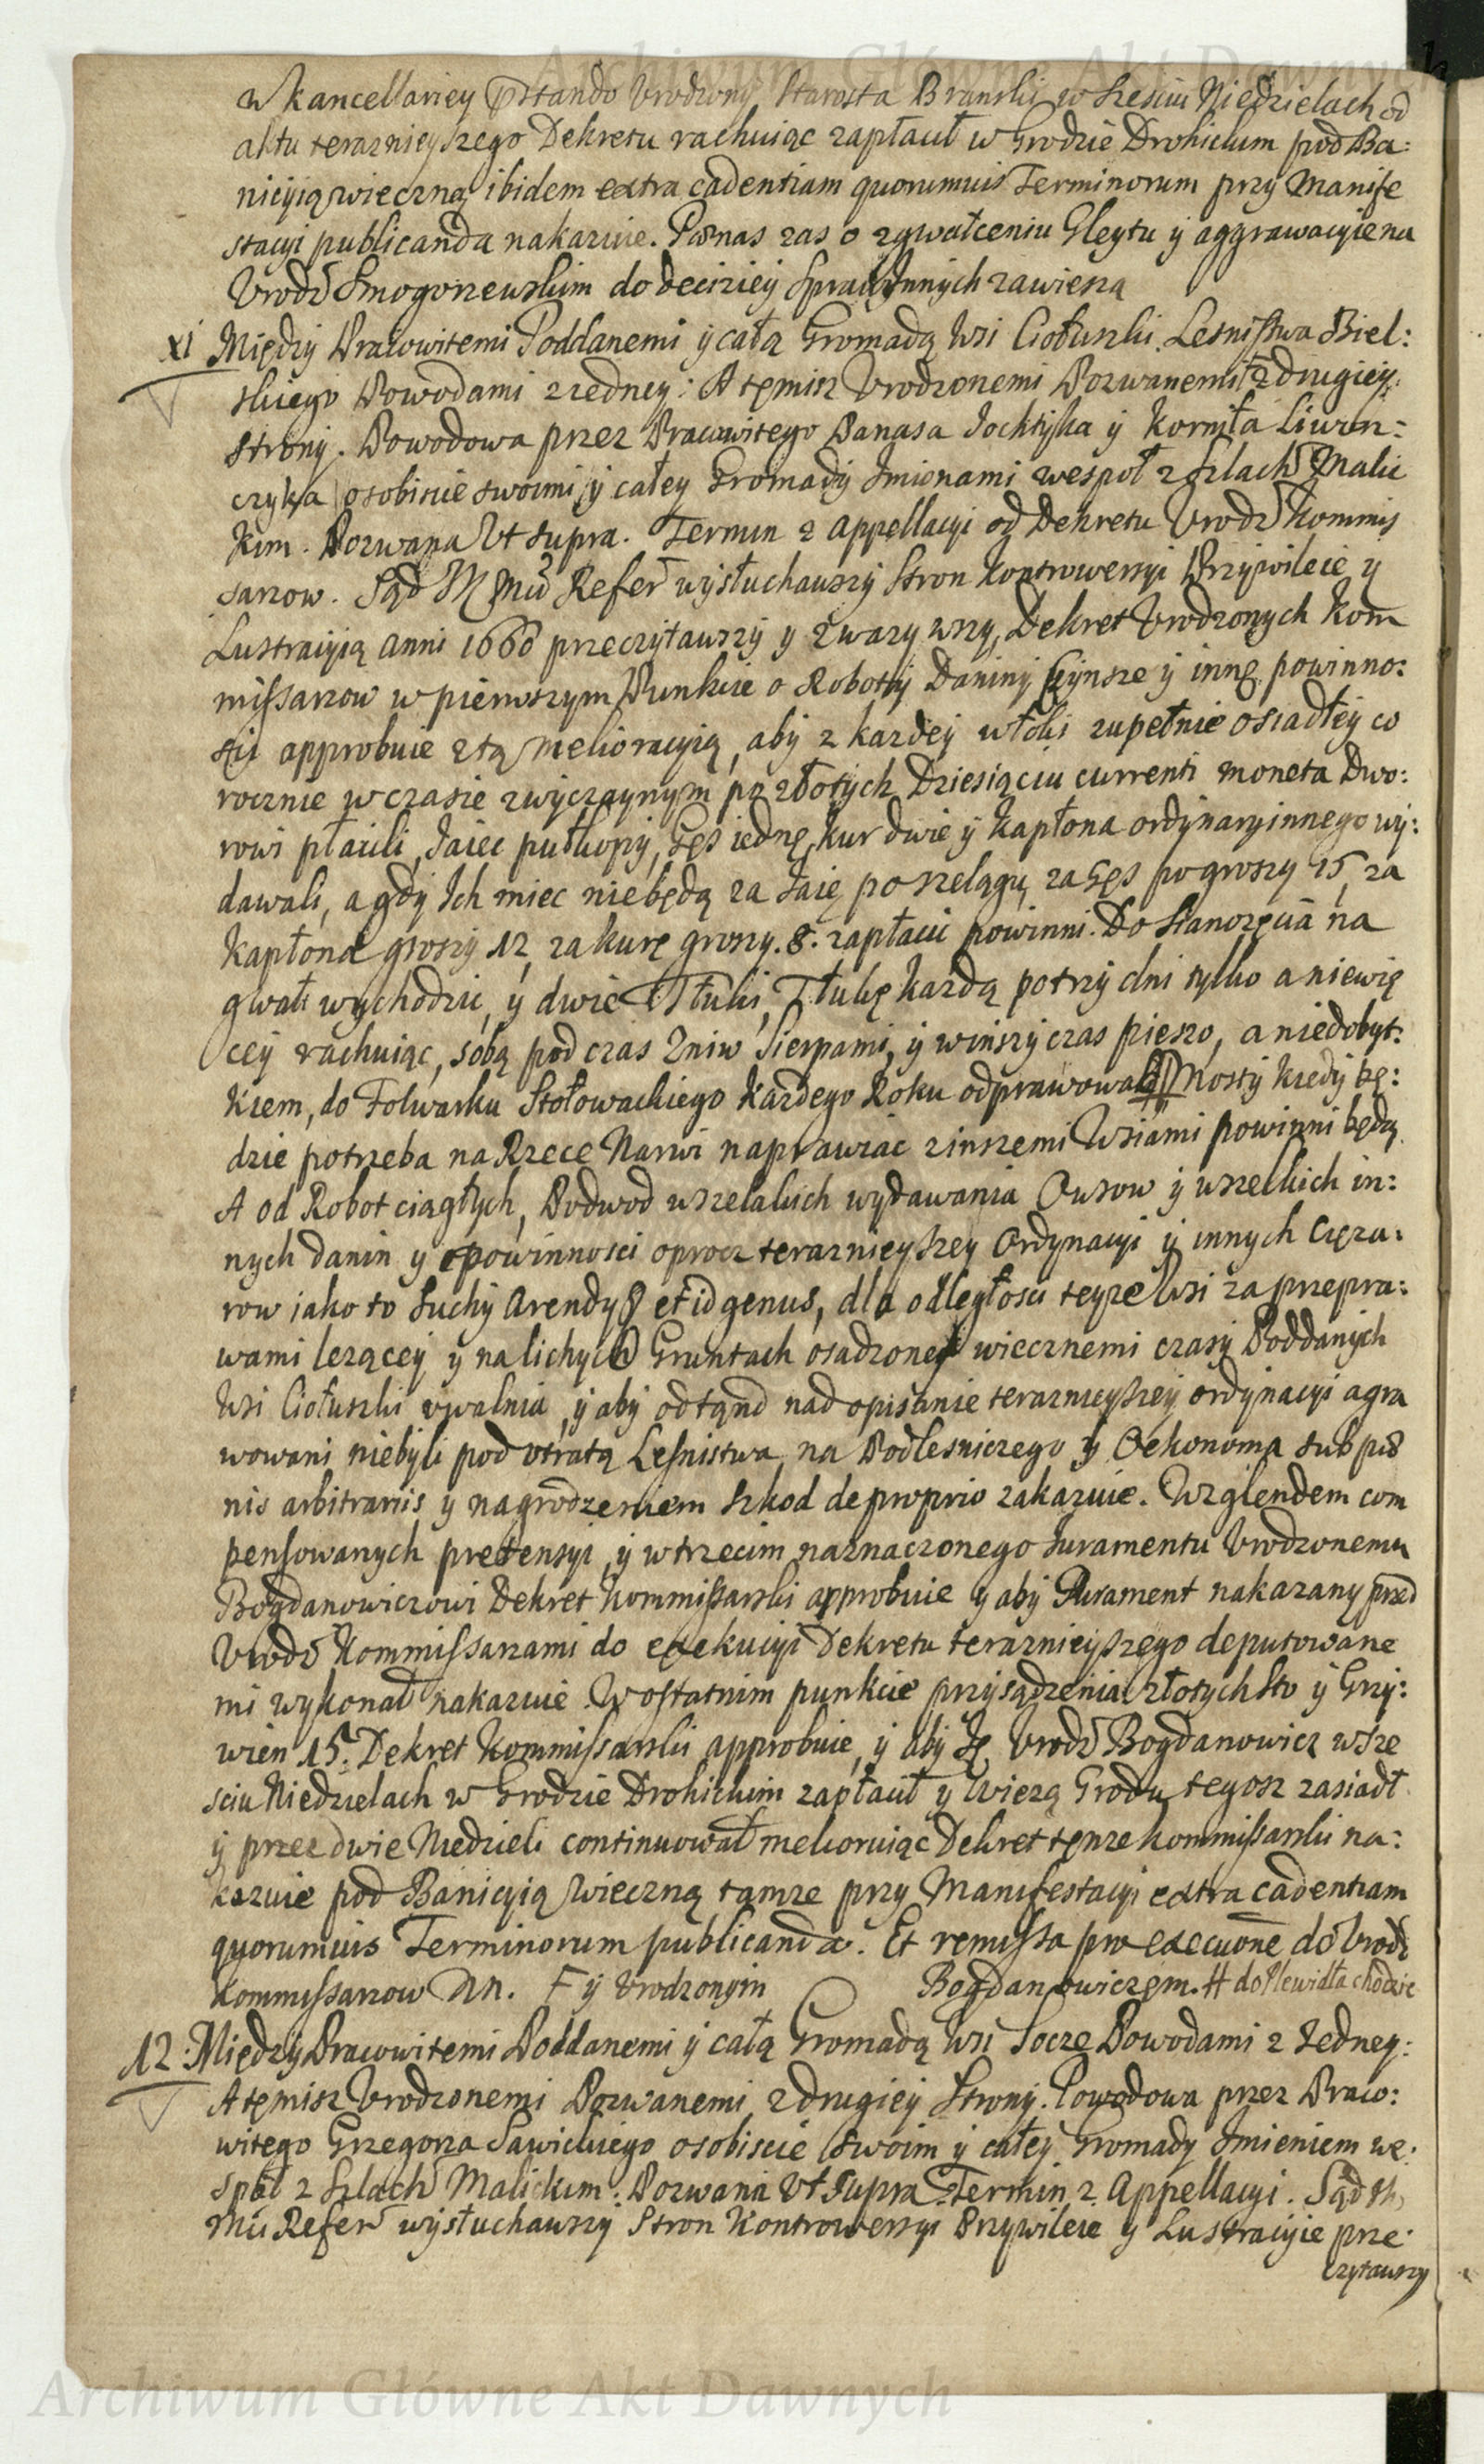 Archiwum Główne Akt Dawnych
w kancellariey praestando Vrodzony Starosta Branski w Szesciu Niedzielach od
aktu teraznieyszego Dekretu rachuiąc zapłacił w Grodzie Drohickim pod Ba:
nicyią wieczną ibidem extra cadentiam quorumuis Terminorum przy Manife
stacyi publicanda nakazuie. Paenas zas o zgwałceniu Gleytu y aggrawacyie na
Vrodz Smogorzewskim do deciziey Spraw Innych zawiesza
XI Między Pracowitemi Poddanemi y całą Gromadą Wsi Ciełuszki Lesnistwa Biel:
skiego Powodami z iedney: A temisz Vrodzonemi Pozwanemi z drugiey
strony. Powodowa przez Pracowitego Panasa Jochtyka y Korniła
czyka osobiscie swoimi y całey Gromady Imionami wespoł z Szlach Malic
kim. Pozwana Vt supra. Termin z appellacyi od Dekretu Vrodz Kommis
sarzow. Sąd Refer wysłuchawszy Stron Kontrowersyi Przywileie y
Lustracyią Anni 1660 przeczytawszy y zwazywszy, Dekret Vrodzonych Kom
missarzow w pierwszym Punkcie o Roboty Daniny Czynsze y inne powinno:
sci approbuie z tą melioracyią, aby z kazdey włoki zupełnie osiadłey co
rocznie w czasie zwyczaynym po złotych Dziesiąciu currenti moneta Dwo:
rowi płacili, Jaiec pułkopy, Gęs iednę, kur dwie y Kapłona ordynaryinnego wy:
dawali, a gdy Ich miec niebędą za Jaie po szelągu, za Gęs po groszy 15, za
Kapłona groszy 12, za kurę groszy. 8. zapłacic powinni. Do Sianozęcia na
gwałt wychodzic, y dwie Tłuki, Tłukę kazdą po trzy dni tylko a niewię
cey rachuiąc, sobą pod czas Zniw Sierpami, y w inszy czas pieszo, a niedobyt:
kiem, do Folwarku Stołowackiego Kazdego Roku odprawowac # Mosty kiedy bę:
dzie potrzeba na Rzece Narwi naprawiac z inszemi Wsiami powinni będą
A od Robot ciągłych, Podwod wszelakich wydawania Owsow y wszelkich in:
nych danin y powinnosci oprocz teraznieyszey Ordynacyi y innych Cięza:
row iako to Suchy Arendy et id genus, dla odległosci teyze Wsi za przepra:
wami lezącey y na lichych Gruntach osadzoney wiecznemi czasy Poddanych
Wsi Ciełuszki vwalnia, y aby odtąnd nad opisanie teraznieyszey ordynacyi agra
wowani niebyli pod vtratą Lesnistwa, na Podlesniczego y Oekonoma sub pae
nis arbitrariis y nagrodzeniem szkod de proprio zakazuie. Wzglendem com
pensowanych pretensyi, y w trzecim naznaczonego Juramentu Vrodzonemu
Bogdanowiczowi Dekret Kommissarski approbuie y aby Jurament nakazany przed
Vrodz Kommissarzami do exekucyi Dekretu teraznieyszego deputowane
mi wykonał nakazuie W ostatnim punkcie przysądzenia złotych sto y Grzy:
wien 15. Dekret Kommissarski approbuie, y aby Je Vrodz Bogdanowicz w sze
sciu Niedzielach w Grodzie Drohickim zapłacił y Wiezą Grodu tegosz zasiadł
y przez dwie Niedzieli continuował melioruiąc Dekret tenze kommissarski na:
kazuie pod Banicyią wieczną tamze przy Manifestacyi extra cadentiam
quorumuis Terminorum publicanda. Et remissa pro executione do Vrodz
Kommissarzow NN. F y Vrodzonym Bogdanowiczem. # do Plewidła chodzic
12. Między Pracowitemi Poddanemi y całą Gromadą Wsi Socze Powodami z Jedney:
A temisz Vrodzonemi Pozwanemi z drugiey Strony. Powodowa przez Praco:
witego Grzegorza Sawickiego osobiscie swoim y całey Gromady Imieniem we:
społ z Szlach Malickim. Pozwana Vt Supra. Termin z Appellacyi. Sąd
Refer wysłuchawszy Stron Kontrowersyi Przywileie y Lustracyie prze:
czytawszy
Archiwum Główne Akt Dawnych